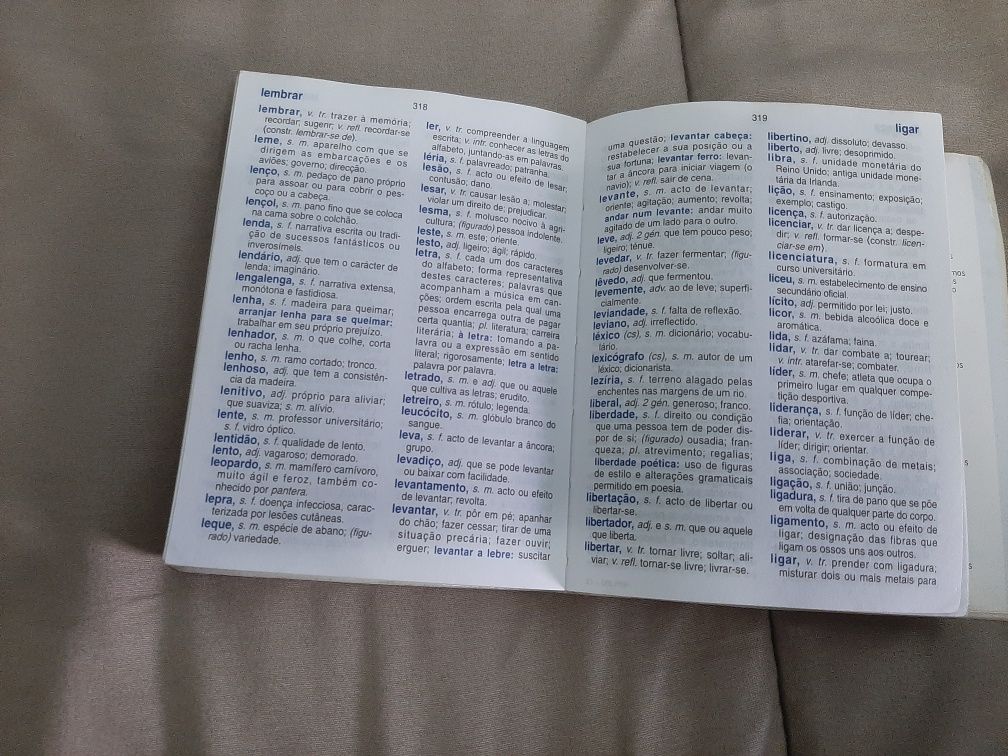 lembrar
318
lembrar, v. tr. trazer à memória;
recordar; sugerir; v. refl. recordar-se
(constr. lembrar-se de).
leme, s. m. aparelho com que se
dirigem as embarcações e os
aviões; governo; direcção.
lenço, s. m. pedaço de pano próprio
para assoar ou para cobrir o pes-
coço ou a cabeça.
lençol, s. m. pano fino que se coloca
na cama sobre o colchão.
lenda, s. f. narrativa escrita ou tradi-
ção de sucessos fantásticos ou
inverosímeis.
lendário, adj. que tem o carácter de
lenda; imaginário.
lengalenga, s. f. narrativa extensa,
monótona e fastidiosa.
lenha, s. f. madeira para queimar;
arranjar lenha para se queimar:
trabalhar em seu próprio prejuízo.
lenhador, s. m. o que colhe, corta
ou racha lenha.
lenho, s. m. ramo cortado; tronco.
lenhoso, adj. que tem a consistên-
cia da madeira.
lenitivo, adj. próprio para aliviar;
que suaviza; s. m. alívio.
lente, s. m. professor universitário;
s. f. vidro óptico.
lentidão, s. f. qualidade de lento.
lento, adj. vagaroso; demorado.
leopardo, s. m. mamífero carnívoro,
muito ágil e feroz, também co-
nhecido por pantera.
lepra, s. f. doença infecciosa, carac-
terizada por lesões cutâneas.
leque, s. m. espécie de abano; (figu-
rado) variedade.
ler, v. tr. compreender a linguagem
escrita; v. intr. conhecer as letras do
alfabeto, juntando-as em palavras.
léria, s. f. palavreado; patranha.
lesão, s. f. acto ou efeito de lesar;
contusão; dano.
lesar, v. tr. causar lesão a; molestar;
violar um direito de; prejudicar.
lesma, s. f. molusco nocivo à agri-
cultura; (figurado) pessoa indolente.
leste, s. m. este; oriente.
lesto, adj. ligeiro; ágil; rápido.
letra, s. f. cada um dos caracteres
do alfabeto; forma representativa
destes caracteres; palavras que
acompanham a música em can-
ções; ordem escrita pela qual uma
pessoa encarrega outra de pagar
certa quantia; pl. literatura; carreira
literária; à letra: tomando a pa-
lavra ou a expressão em sentido
literal; rigorosamente; letra a letra:
palavra por palavra.
letrado, s. m. e adj. que ou aquele
que cultiva as letras; erudito.
letreiro, s. m. rótulo; legenda.
leucócito, s. m. glóbulo branco do
sangue.
leva, s. f. acto de levantar a âncora;
grupo.
levadiço, adj. que se pode levantar
ou baixar com facilidade.
levantamento, s. m. acto ou efeito
de levantar; revolta.
levantar, v. tr. pôr em pé; apanhar
do chão; fazer cessar; tirar de uma
situação precária; fazer ouvir;
erguer; levantar a lebre: suscitar
319
ligar
uma questão; levantar cabeça:
restabelecer a sua posição ou a
sua fortuna; levantar ferro: levan-
tar a âncora para iniciar viagem (o
navio); v. refl. sair de cena.
levante, s. m. acto de levantar;
oriente; agitação; aumento; revolta;
andar num levante: andar muito
agitado de um lado para o outro.
leve, adj. 2 gén. que tem pouco peso;
ligeiro; ténue.
levedar, v. tr. fazer fermentar; (figu-
rado) desenvolver-se.
lêvedo, adj. que fermentou.
levemente, adv. ao de leve; superfi-
cialmente.
leviandade, s. f. falta de reflexão.
leviano, adj. irreflectido.
léxico (cs), s. m. dicionário; vocabu-
lário.
lexicógrafo (cs), s. m. autor de um
léxico; dicionarista.
lezíria, s. f. terreno alagado pelas
enchentes nas margens de um rio.
liberal, adj. 2 gén. generoso; franco.
liberdade, s. f. direito ou condição
que uma pessoa tem de poder dis-
por de si; (figurado) ousadia; fran-
queza; pl. atrevimento; regalias;
liberdade poética: uso de figuras
de estilo e alterações gramaticais
permitido em poesia.
libertação, s. f. acto de libertar ou
libertar-se.
libertador, adj. e s. m. que ou aquele
que liberta.
libertar, v. tr. tornar livre; soltar; ali-
viar; v. refl. tornar-se livre; livrar-se.
libertino, adj. dissoluto; devasso.
liberto, adj. livre; desoprimido.
libra, s. f. unidade monetária do
Reino Unido; antiga unidade mone-
tária da Irlanda.
lição, s. f. ensinamento; exposição;
exemplo; castigo.
licença, s. f. autorização.
licenciar, v. tr. dar licença a; despe-
dir; v. refl. formar-se (constr. licen-
ciar-se em).
licenciatura, s. f. formatura em
curso universitário.
liceu, s. m. estabelecimento de ensino
secundário oficial.
lícito, adj. permitido por lei; justo.
licor, s. m. bebida alcoólica doce e
aromática.
lida, s. f. azáfama; faina.
lidar, v. tr. dar combate a; tourear;
v. intr. atarefar-se; combater.
líder, s. m. chefe; atleta que ocupa o
primeiro lugar em qualquer compe-
tição desportiva.
liderança, s. f. função de líder; che-
fia; orientação.
liderar, v. tr. exercer a função de
líder; dirigir; orientar.
liga, s. f. combinação de metais;
associação; sociedade.
ligação, s. f. união; junção.
ligadura, s. f. tira de pano que se põe
em volta de qualquer parte do corpo.
ligamento, s. m. acto ou efeito de
ligar; designação das fibras que
ligam os ossos uns aos outros.
ligar, v. tr. prender com ligadura;
misturar dois ou mais metais para